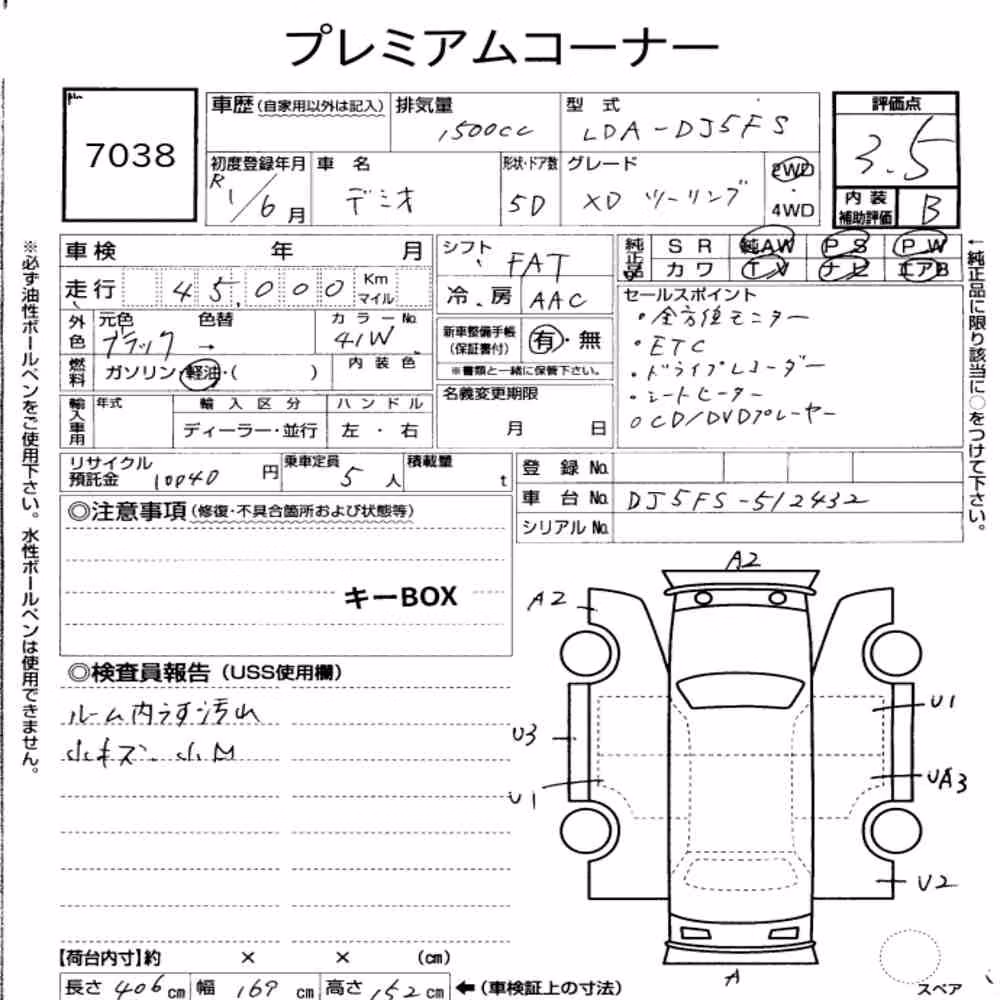 プレミアムコーナー
7038
車歴(自家用以外は記入)
排気量
1500cc
型 式
LDA-DJ5FS
評価点
3.5
内装補助評価
B
初度登録年月
R 1/6月
車 名
デミオ
形状・ドア数
5D
グレード
XD ツーリング
2WD
・
4WD
車検 年 月
走行 45,000 Km マイル
外色
元色 色替
ブラック →
カラーNo.
41W
燃料
ガソリン・軽油・( )
内装色
輸入車用
年式
輸入区分
ディーラー・並行
ハンドル
左 ・ 右
シフト
FAT
冷.房
AAC
新車整備手帳(保証書付)
有・無
※書類と一緒に保管下さい。
名義変更期限
月 日
純正品
SR 純AW PS PW
カワ TV ナビ エアB
セールスポイント
・全方位モニター
・ETC
・ドライブレコーダー
・シートヒーター
○CD/DVDプレーヤー
←純正品に限り該当に○をつけて下さい。
※必ず油性ボールペンをご使用下さい。水性ボールペンは使用できません。
リサイクル預託金
10040円
乗車定員
5人
積載量
t
登録No.
車台No.
DJ5FS-512432
シリアルNo.
◎注意事項(修復・不具合箇所および状態等)
キーBOX
◎検査員報告(USS使用欄)
ルーム内うす汚れ
小キズ.小凹
A2
A2
U3
U1
U1
UA3
U2
A
スペア
【荷台内寸】約 × × (cm)
長さ 406cm 幅 169cm 高さ 152cm ←(車検証上の寸法)